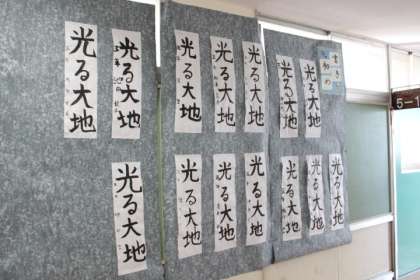 光る大地
光る大地
光る大地
光る大地
光る大地
光る大地
光る大地
書き
初め
5一
光る大地
光る大地
光る大地
光る大地
光る大地
光る大地
光る大地